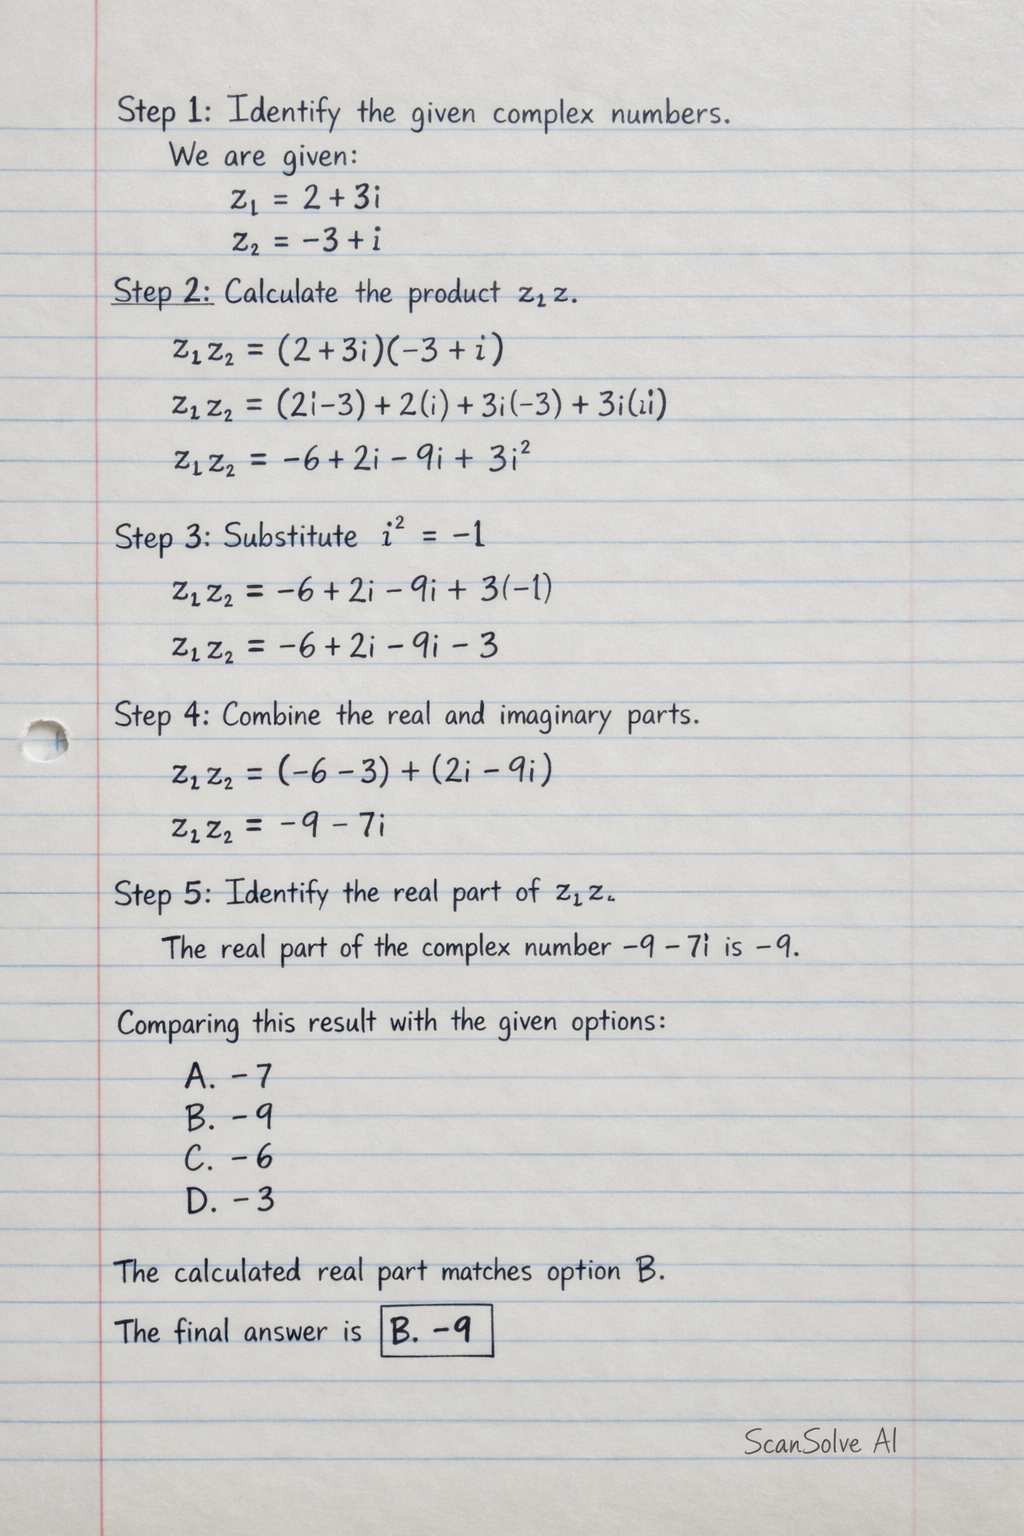 Step 1: Identify the given complex numbers.
We are given:
z₁ = 2 + 3i
z₂ = −3 + i
Step 2: Calculate the product z₁ z.
z₁ z₂ = (2 + 3i)(−3 + i)
z₁ z₂ = (2i−3) + 2(i) + 3i(−3) + 3i(ii)
z₁ z₂ = −6 + 2i − 9i + 3i²
Step 3: Substitute i² = −1
z₁ z₂ = −6 + 2i − 9i + 3(−1)
z₁ z₂ = −6 + 2i − 9i − 3
Step 4: Combine the real and imaginary parts.
z₁ z₂ = (−6 − 3) + (2i − 9i)
z₁ z₂ = −9 − 7i
Step 5: Identify the real part of z₁ z.
The real part of the complex number −9 − 7i is −9.
Comparing this result with the given options:
A. −7
B. −9
C. −6
D. −3
The calculated real part matches option B.
The final answer is B. −9
ScanSolve AI